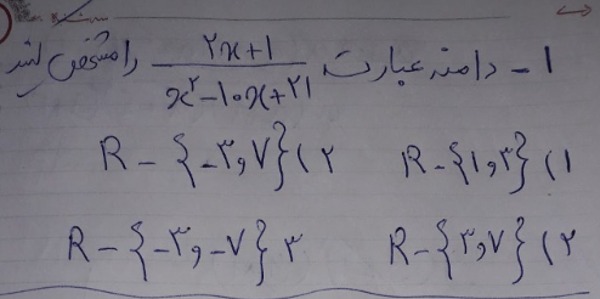 ۱- دامنه عبارت (۲x+۱)/(x²-۱۰x+۲۱) را مشخص کنید
۱) R-{۱و۳} ۲) R-{-۳و۷}
۲) R-{۳و۷} ۳ R-{-۳و-۷}